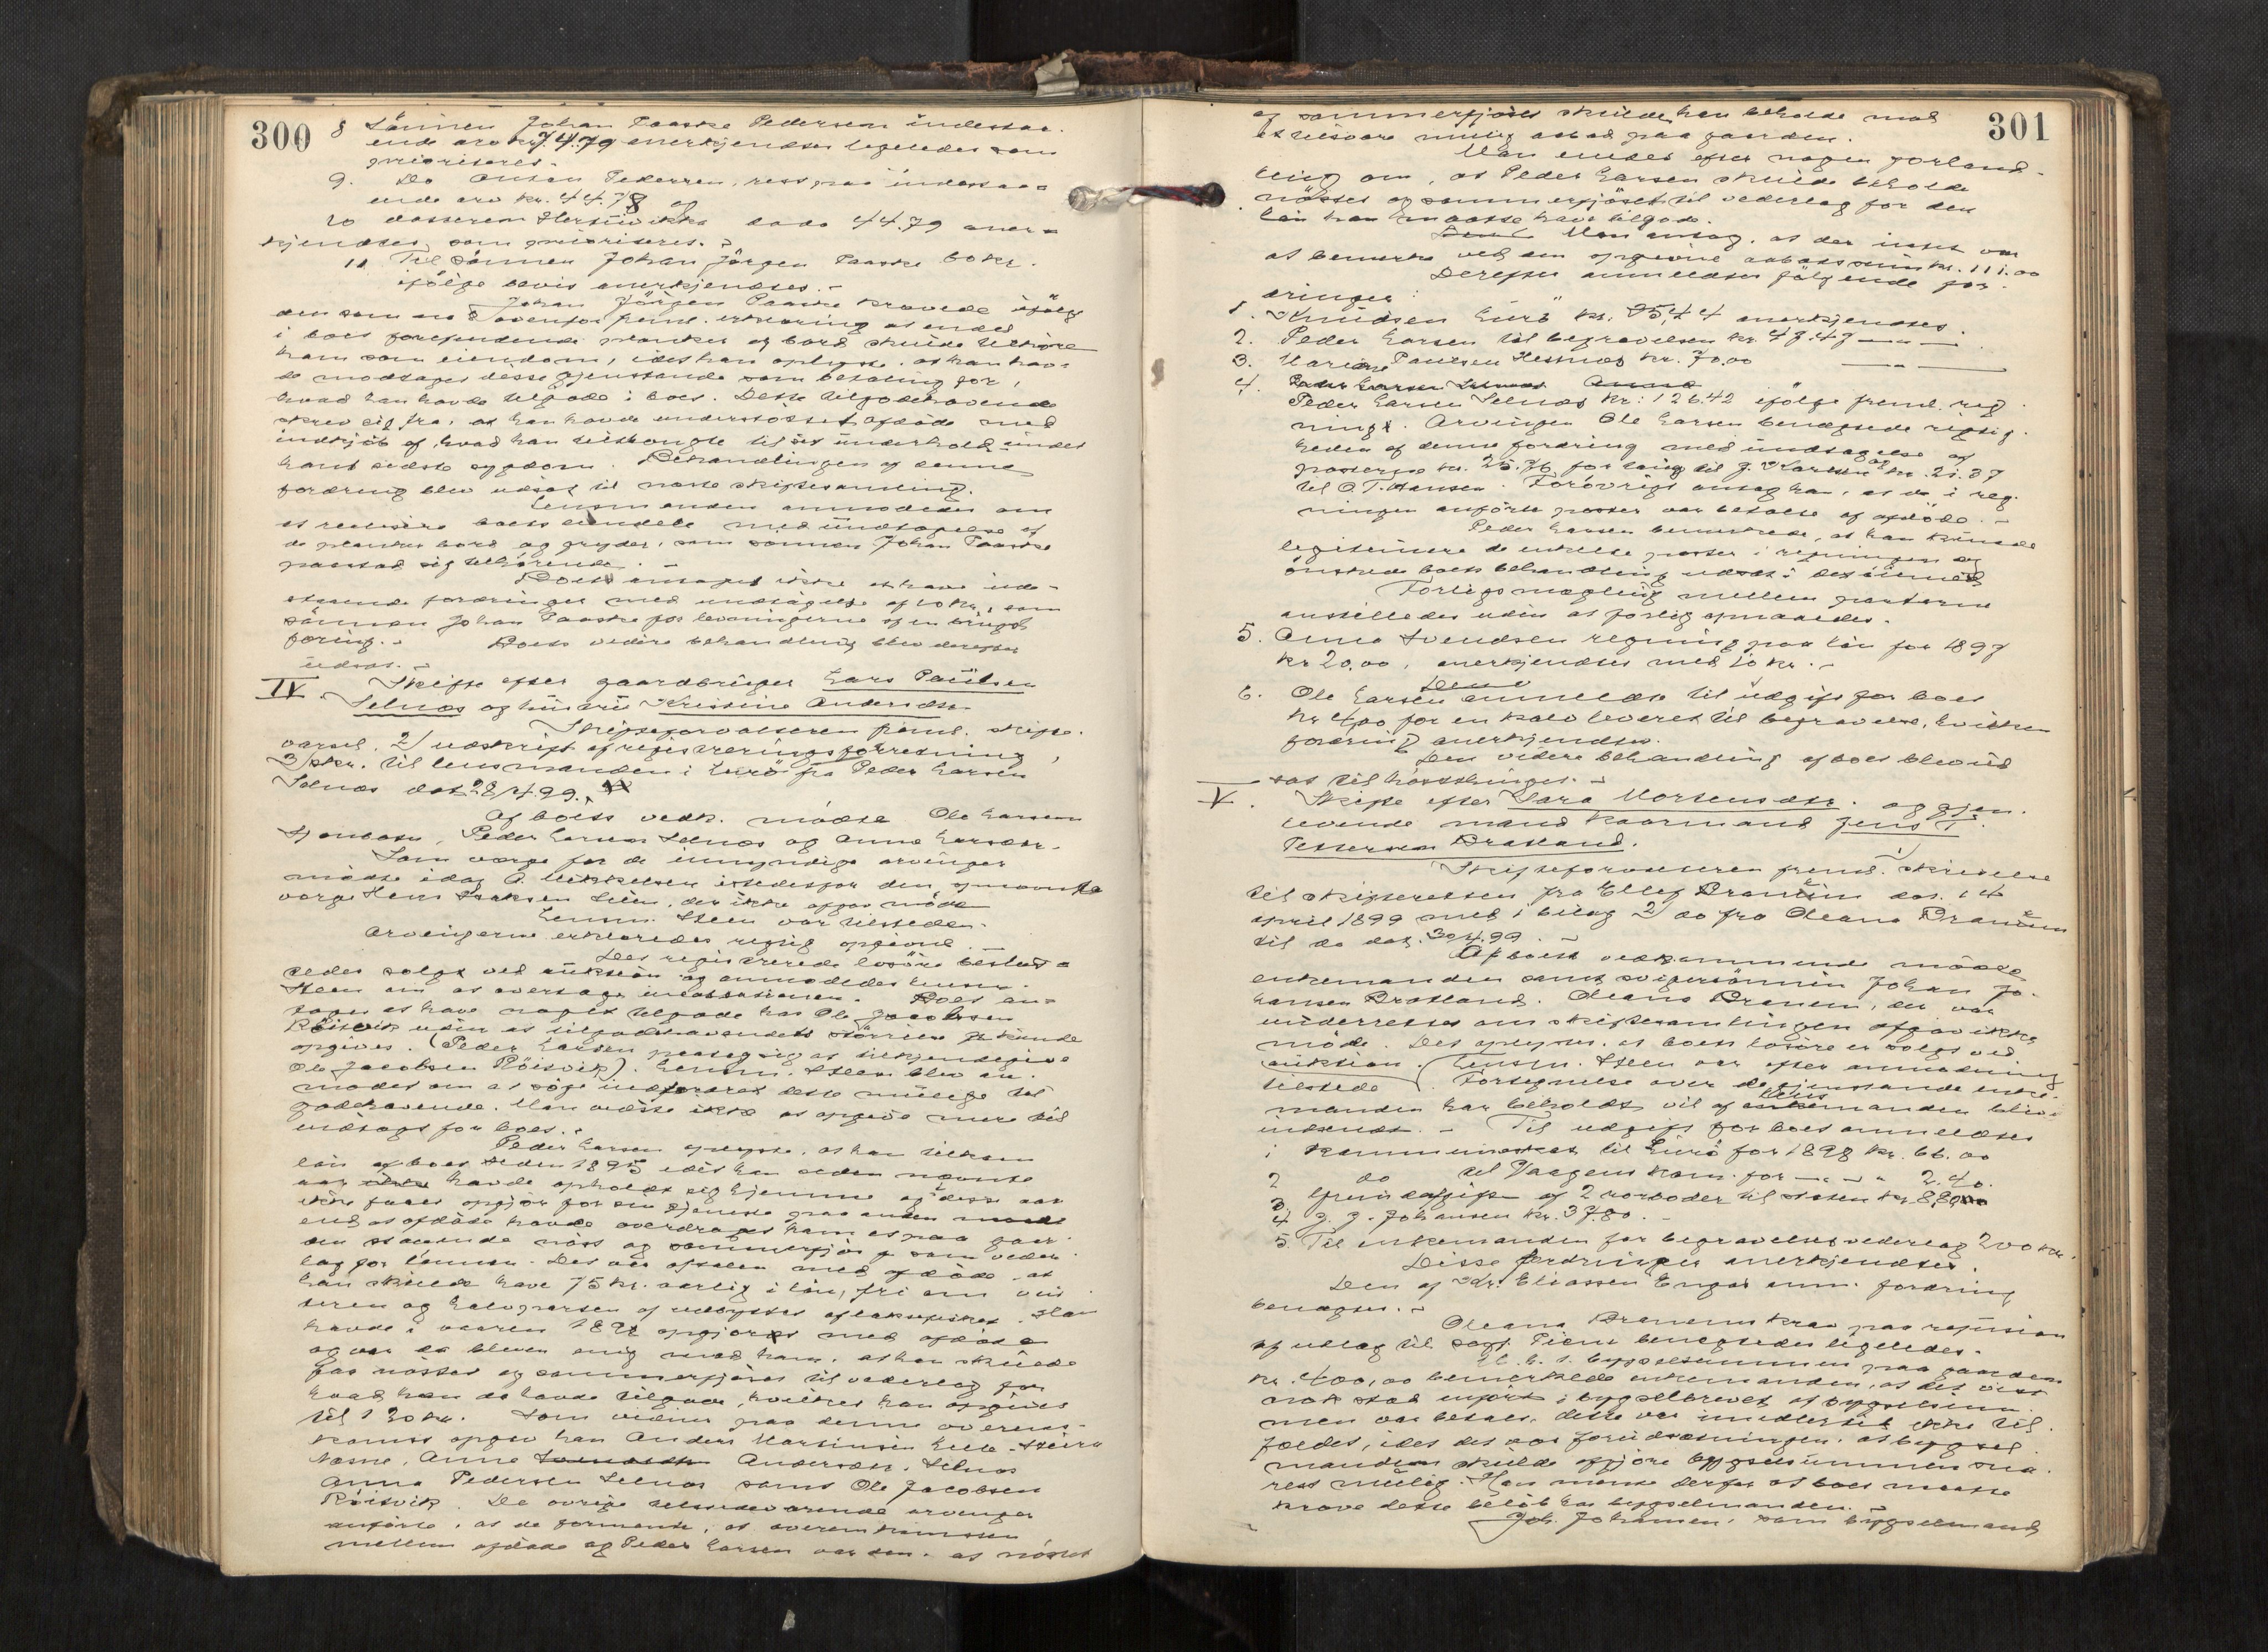 300
8 Sønnen Johan Paaske Pedersen indestaa-
ende arv kr. 74.79 anerkjendtes ligeledes som
prioriteret.
9. Do Anton Pedersen, rest paa indestaa-
ende arv kr. 44.78 og
10 datteren do do 44.79 aner-
kjendtes som prioriteret.
11 Til sønnen Johan Jørgen Paaske 60 kr.
ifølge bevis anerkjendtes.
Johan Jørgen Paaske krævede ifølge
den som no ovenfor freml. erklæring at endel
i boet forefindende planker og bord skulde tilhøre
ham som eiendom, idet han oplyste, at han hav-
de modtaget disse gjenstande som betaling for,
hvad han havde tilgode i boet. Dette tilgodehavende
skrev sig fra, at han havde understøttet afdøde med
indkjøb af, hvad han tiltrængte til sit underhold under
hans sidste sygdom. Behandlingen af denne
fordring blev udsat til næste skiftesamling.
Lensmanden anmodedes om
at realisere boets eiendele med undtagelse af
de planker, bord og gryder, som sønnen Johan Paaske
paastod sig tilhørende.
Boet antoges ikke at have ude-
staaende fordringer med undtagelse af 10 kr., som
sønnen Johan Paaske for leveringerne af en brugt
Boets videre behandling blev derefter
udsat.
IV Skifte efter gaardbruger Lars Paulsen
Selnæs og hustru Kristine Andersdtr.
Skifteforvalteren freml. skifte-
varsel, 2) udskrift af registreringsforretning,
3) skr. til lensmanden i Lurø fra Peder Larsen
Selnæs dat. 28/4.99.
Af boets vedk. mødte Ole Larsen
Peder Larsen Selnæs og Anna Larsdtr.
Som værge for de umyndige arvinger
mødte idag A. Mikkelsen istedetfor den opnævnte
værge Hans Isaksen Lien, der ikke afgav møde
Lensm. Steen var tilstede.
Arvingerne erklæredes rigtig opgivne.
Det registrerede løsøre beslut-
tedes solgt ved auktion og anmodedes lensm.
Steen om at overtage inkassationen. Boet an-
toges at have noget tilgode hos Ole Jacobsen
Røisvik uden at tilgodehavendets størrelse kunde
opgives. (Peder Larsen paatog sig at tilkjendegive
Ole Jacobsen Røisvik). Lensm. Steen blev an-
modet om at søge indfordret dette mulige til-
godehavende. Man vidste ikke at opgive mere til
indtægt for boet.
Peder Larsen oplyste, at han tilkom
løn af boet siden 1895 idet han siden nævnte
aar havde opholdt sig hjemme og i disse aar
ikke faaet opgjør for sin tjeneste paa anden maade
end at afdøde havde overdraget ham et paa gaar-
den staaende nøst og sommerfjøs som veder-
lag for lønnen. Det var aftalen med afdøde at
han skulde have 75 kr. aarlig i løn, fri om vin-
teren og halvparten af udbyttet af laksefisket. Han
havde i vaaren 1898 opgjort med afdøde
og var da bleven enig med ham, at han skulde
faa nøstet og sommerfjøset til vederlag for
hvad han da havde tilgode, hvilket han opgives
til 120 kr. Som vidner paa denne overens-
komst opgav han Anders Martinsen
Næsne, Anne Andersdtr. Selnæs
Anna Pedersen Selnæs samt Ole Jacobsen
Røisvik. De øvrige tilstedeværende arvinger
anførte, at de formente, at overenskomsten
mellem afdøde og Peder Larsen var den, at nøstet
301
og sommerfjøset skulde han beholde mod
at tilsvare mulig aabod paa gaarden.
Man enedes efter nogen forhand-
ling om, at Peder Larsen skulde beholde
nøstet og sommerfjøset til vederlag for den
løn han maatte have tilgode.
Man antog, at der intet var
at bemerke ved den opgivne aabodssum kr. 111.00
Derefter anmeldtes følgende for-
dringer:
1. Knudsen Lurø kr. 25,44 anerkjendtes.
2. Peder Larsen til begravelsen kr. 47.47 —"—
3. Marie Paulsen Hestnæs kr. 70.00 —"—
4.
Peder Larsen Selnæs kr. 126.42 ifølge freml. reg-
ning. Arvingen Ole Larsen benægtede rigtig-
heden af denne fordring med undtagelse af
posterne kr. 25.76 for laug til J. Karlsen og kr. 21.37
til O. T. Hansen. Forøvrigt antog han, at de i reg-
ningen anførte poster var betalte af afdøde.
Peder Larsen bemerkede, at han kunde
legitimere de enkelte poster i regningen og
ønskede boets behandling udsat i det øiemed
Forligsmægling mellem parterne
anstilledes uden at forlig opnaaedes.
5. Anna Svendsen regning paa løn for 1897
kr 20.00, anerkjendtes med 10 kr.
6. Ole Larsen anmeldte til udgift for boet
kr 4,00 for en kalv leveret til begravelse, hvilken
fordring anerkjendtes.
Den videre behandling af boet blev ud-
sat til høstthinget.
V. Skifte efter Sara Mortensdtr. og gjen-
levende mand kaarmand Jens T.
Pettersen Bratland.
Skifteforvalteren freml. 1) skrivelse
til skifteretten fra Ellef Dranen dat. 14
april 1899 med 1 bilag 2) do fra Oleana Dranen
til do dat. 30/4.99.
Af boets vedkommende mødte
enkemanden samt svigersønnen Johan Jo-
hansen Bratland. Oleana Dranen, der var
underrettet om skiftesamlingen afgav ikke
møde. Det oplystes, at boets løsøre er solgt ved
auktion. Lensm. Steen var efter anmodning
tilstede. Fortegnelse over de gjenstande enke-
manden har beholdt, vil af lensmanden blive
indsendt. Til udgift for boet anmeldtes
1 Kommuneskat til Lurø for 1898 kr. 66.00
2 do til Vaagens kom. for —"— " 2.40.
3 Grundafgift af 2 rorboder til staten kr. 8,80
4 J. J. Johansen kr. 37.80.
5. Til enkemanden for begravelsesvederlag 200 kr.
Disse fordringer anerkjendtes.
Den af Kr. Eliassen Engas anm. fordring
benægtes.
Oleana Dranens krav paa refusion
af udlæg til sagf. Piene benegtedes ligeledes.
H. h. t. bygselsummen paa gaarden
kr. 400,00 bemerkede enkemanden, at det vist-
nok stod anført i bygselbrevet at bygselsum-
men var betalt, dette var imidlertid ikke til-
fældet, idet det var forudsætningen, at bygsel-
manden skulde afgjøre bygselsummen sna-
rest mulig. Han mente derfor at boet maatte
kræve dette beløb hos bygselmanden.
Joh. Johansen, som bygselmand